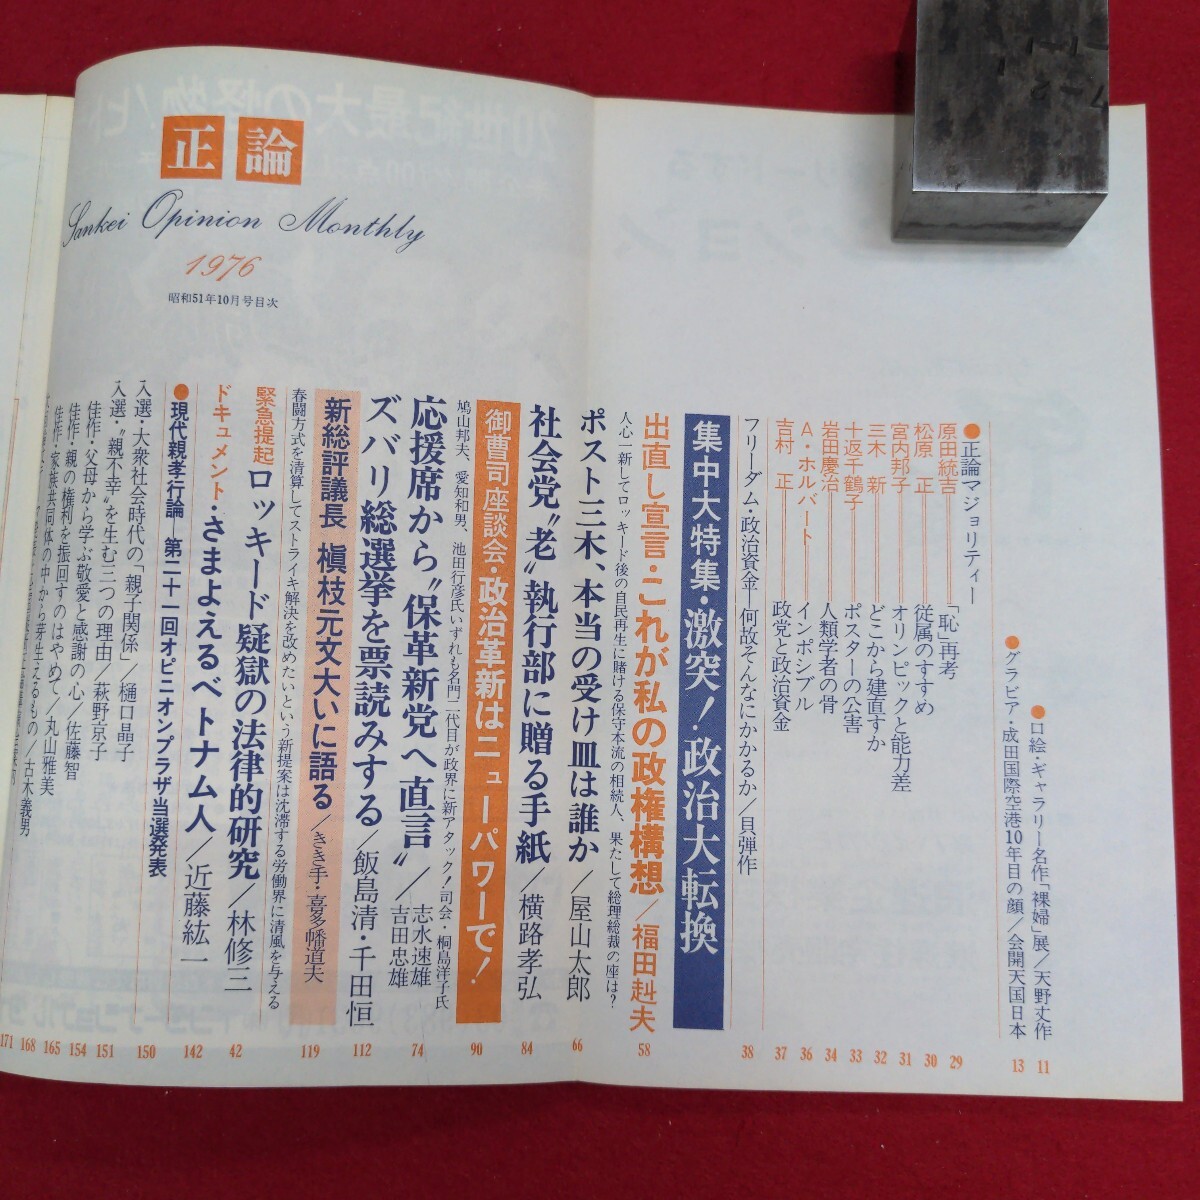 正論
Sankei Opinion Monthly
1976
昭和51年10月号目次
●口絵・ギャラリー名作「裸婦」展／天野丈作 11
●グラビア・成田国際空港10年目の顔／会開天国日本 13
●正論マジョリティー
原田統吉 「恥」再考 29
松原 正 従属のすすめ 30
宮内邦子 オリンピックと能力差 31
三木 新 どこから建直すか 32
十返千鶴子 ポスターの公害 33
岩田慶治 人類学者の骨 34
A・ホルバート インポシブル 36
吉村 正 政党と政治資金 37
フリーダム・政治資金―何故そんなにかかるか／貝弾作 38
集中大特集・激突！政治大転換
出直し宣言・これが私の政権構想／福田赳夫 58
人心一新してロッキード後の自民再生に賭ける保守本流の相続人、果たして総理総裁の座は？
ポスト三木、本当の受け皿は誰か／屋山太郎 66
社会党〝老〟執行部に贈る手紙／横路孝弘 84
御曹司座談会・政治革新はニューパワーで！ 90
鳩山邦夫、愛知和男、池田行彦氏いずれも名門二代目が政界に新アタック！司会・桐島洋子氏
応援席から〝保革新党へ直言〟／志水速雄 吉田忠雄 74
ズバリ総選挙を票読みする／飯島清・千田恒 112
新総評議長 槇枝元文大いに語る／きき手・喜多幡道夫 119
春闘方式を清算してストライキ解決を改めたいという新提案は沈滞する労働界に清風を与える
緊急提起 ロッキード疑獄の法律的研究／林修三 42
ドキュメント・さまよえるベトナム人／近藤紘一 142
●現代親孝行論 第二十一回オピニオンプラザ当選発表
入選・大衆社会時代の「親子関係」／樋口晶子 150
入選・〝親不幸〟を生む三つの理由／萩野京子 151
佳作・父母から学ぶ敬愛と感謝の心／佐藤智 154
佳作・親の権利を振回すのはやめて／丸山雅美 165
佳作・家族共同体の中から芽生えるもの／古木義男 168
171